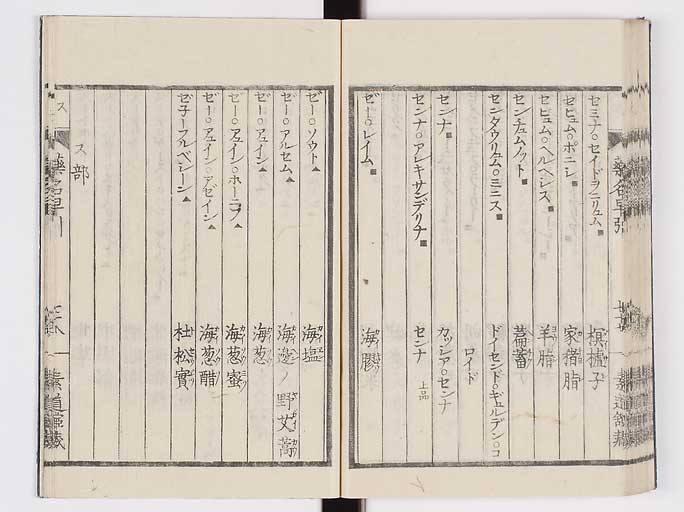 セミナ○セイドヲニリュム 榠樝子
セビュム○ポニレ 家猪脂
セビュム○ヘルヘレス 羊脂
センチュムノット 萹蓄
センタウリュム○ミニス ドイセンド○ギュルデン○コ
ロイド
センナ カッシア○センナ
センナ○アレキサンデリナ センナ 上品
ゼー○レイム 海膠
ゼー○ソウト 海塩
ゼー○アルセム 海邊ノ野艾蒿
ゼー○アュイン 海葱
ゼー○アュイン○ホーニフ 海葱蜜
ゼー○アュイン○アゼイン 海葱醋
ゼ子ーフルベレーン 杜松實
ス部
ス
藥名早引